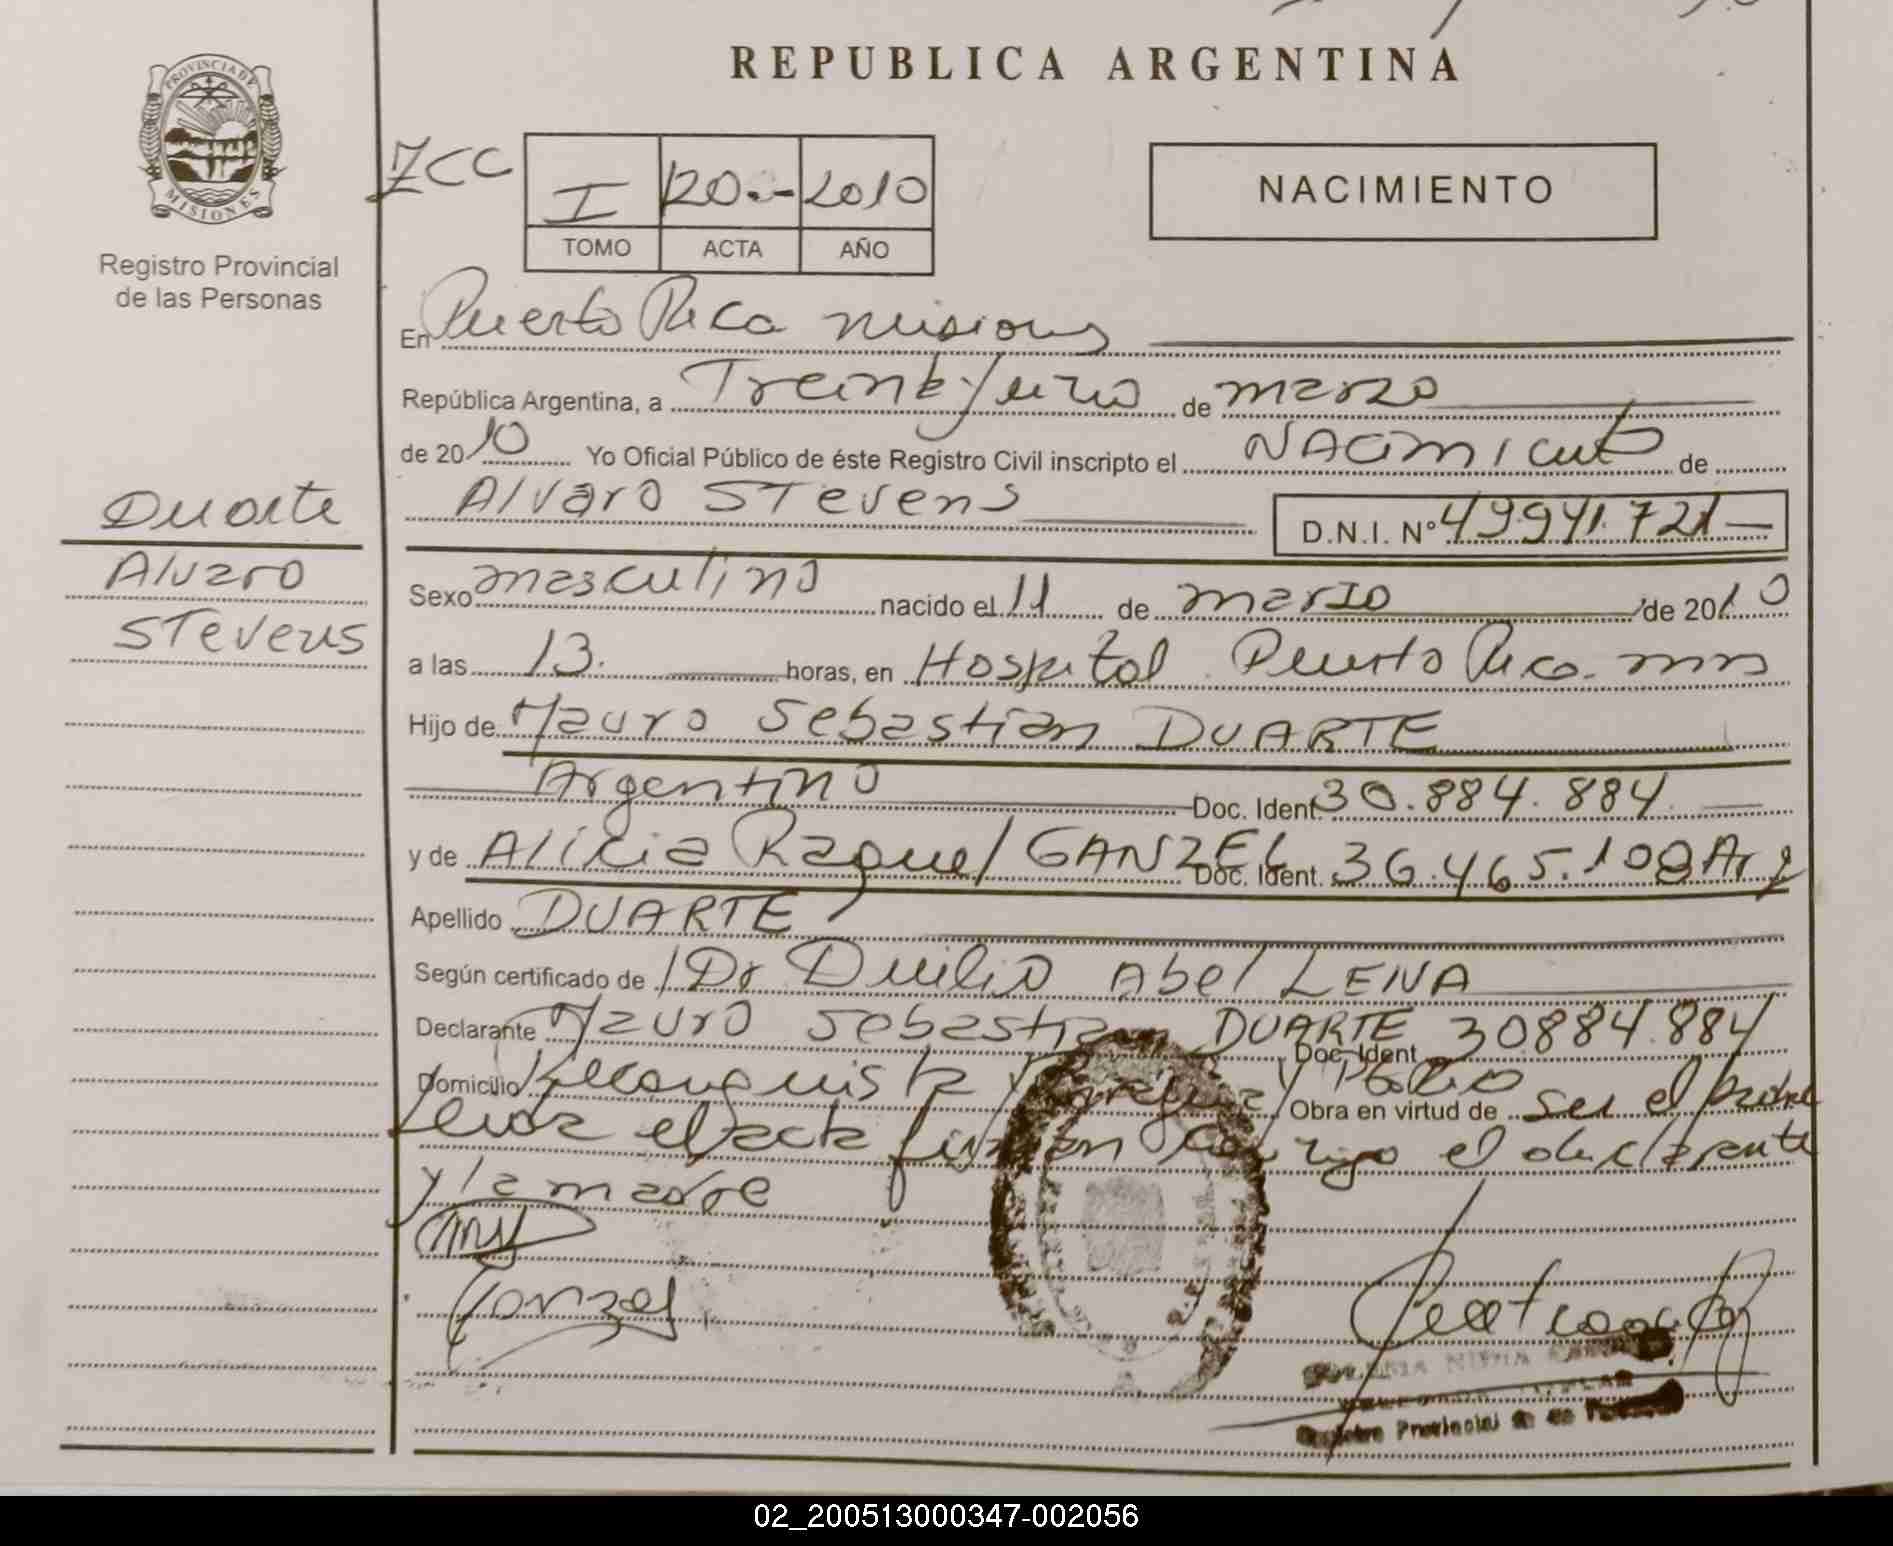 REPUBLICA ARGENTINA
PROVINCIA DE MISIONES
Registro Provincial
de las Personas
ZCC
I 120.- 2010
TOMO ACTA AÑO
NACIMIENTO
En Puerto Rico Misiones
República Argentina, a Treinta y uno de marzo
de 2010 Yo Oficial Público de éste Registro Civil inscripto el NAcimiento de
Alvaro Stevens D.N.I. Nº 49.941.721
Duarte
Alvaro
Stevens
Sexo masculino nacido el 11 de marzo de 2010
a las 13. horas, en Hospital Puerto Rico. mns
Hijo de Mauro Sebastian DUARTE
Argentino Doc. Ident. 30.884.884
y de Alicia Raquel GANZEL Doc. Ident. 36.465.108 Arg
Apellido DUARTE
Según certificado de Dr Duilio Abel LENA
Declarante Mauro Sebastian DUARTE Doc. Ident 30884.884
Domicilio Reconquista y Obra en virtud de ser el padre
el acta firman conmigo el declarante
y la madre
Ganzel
Registro Provincial de las
02_200513000347-002056